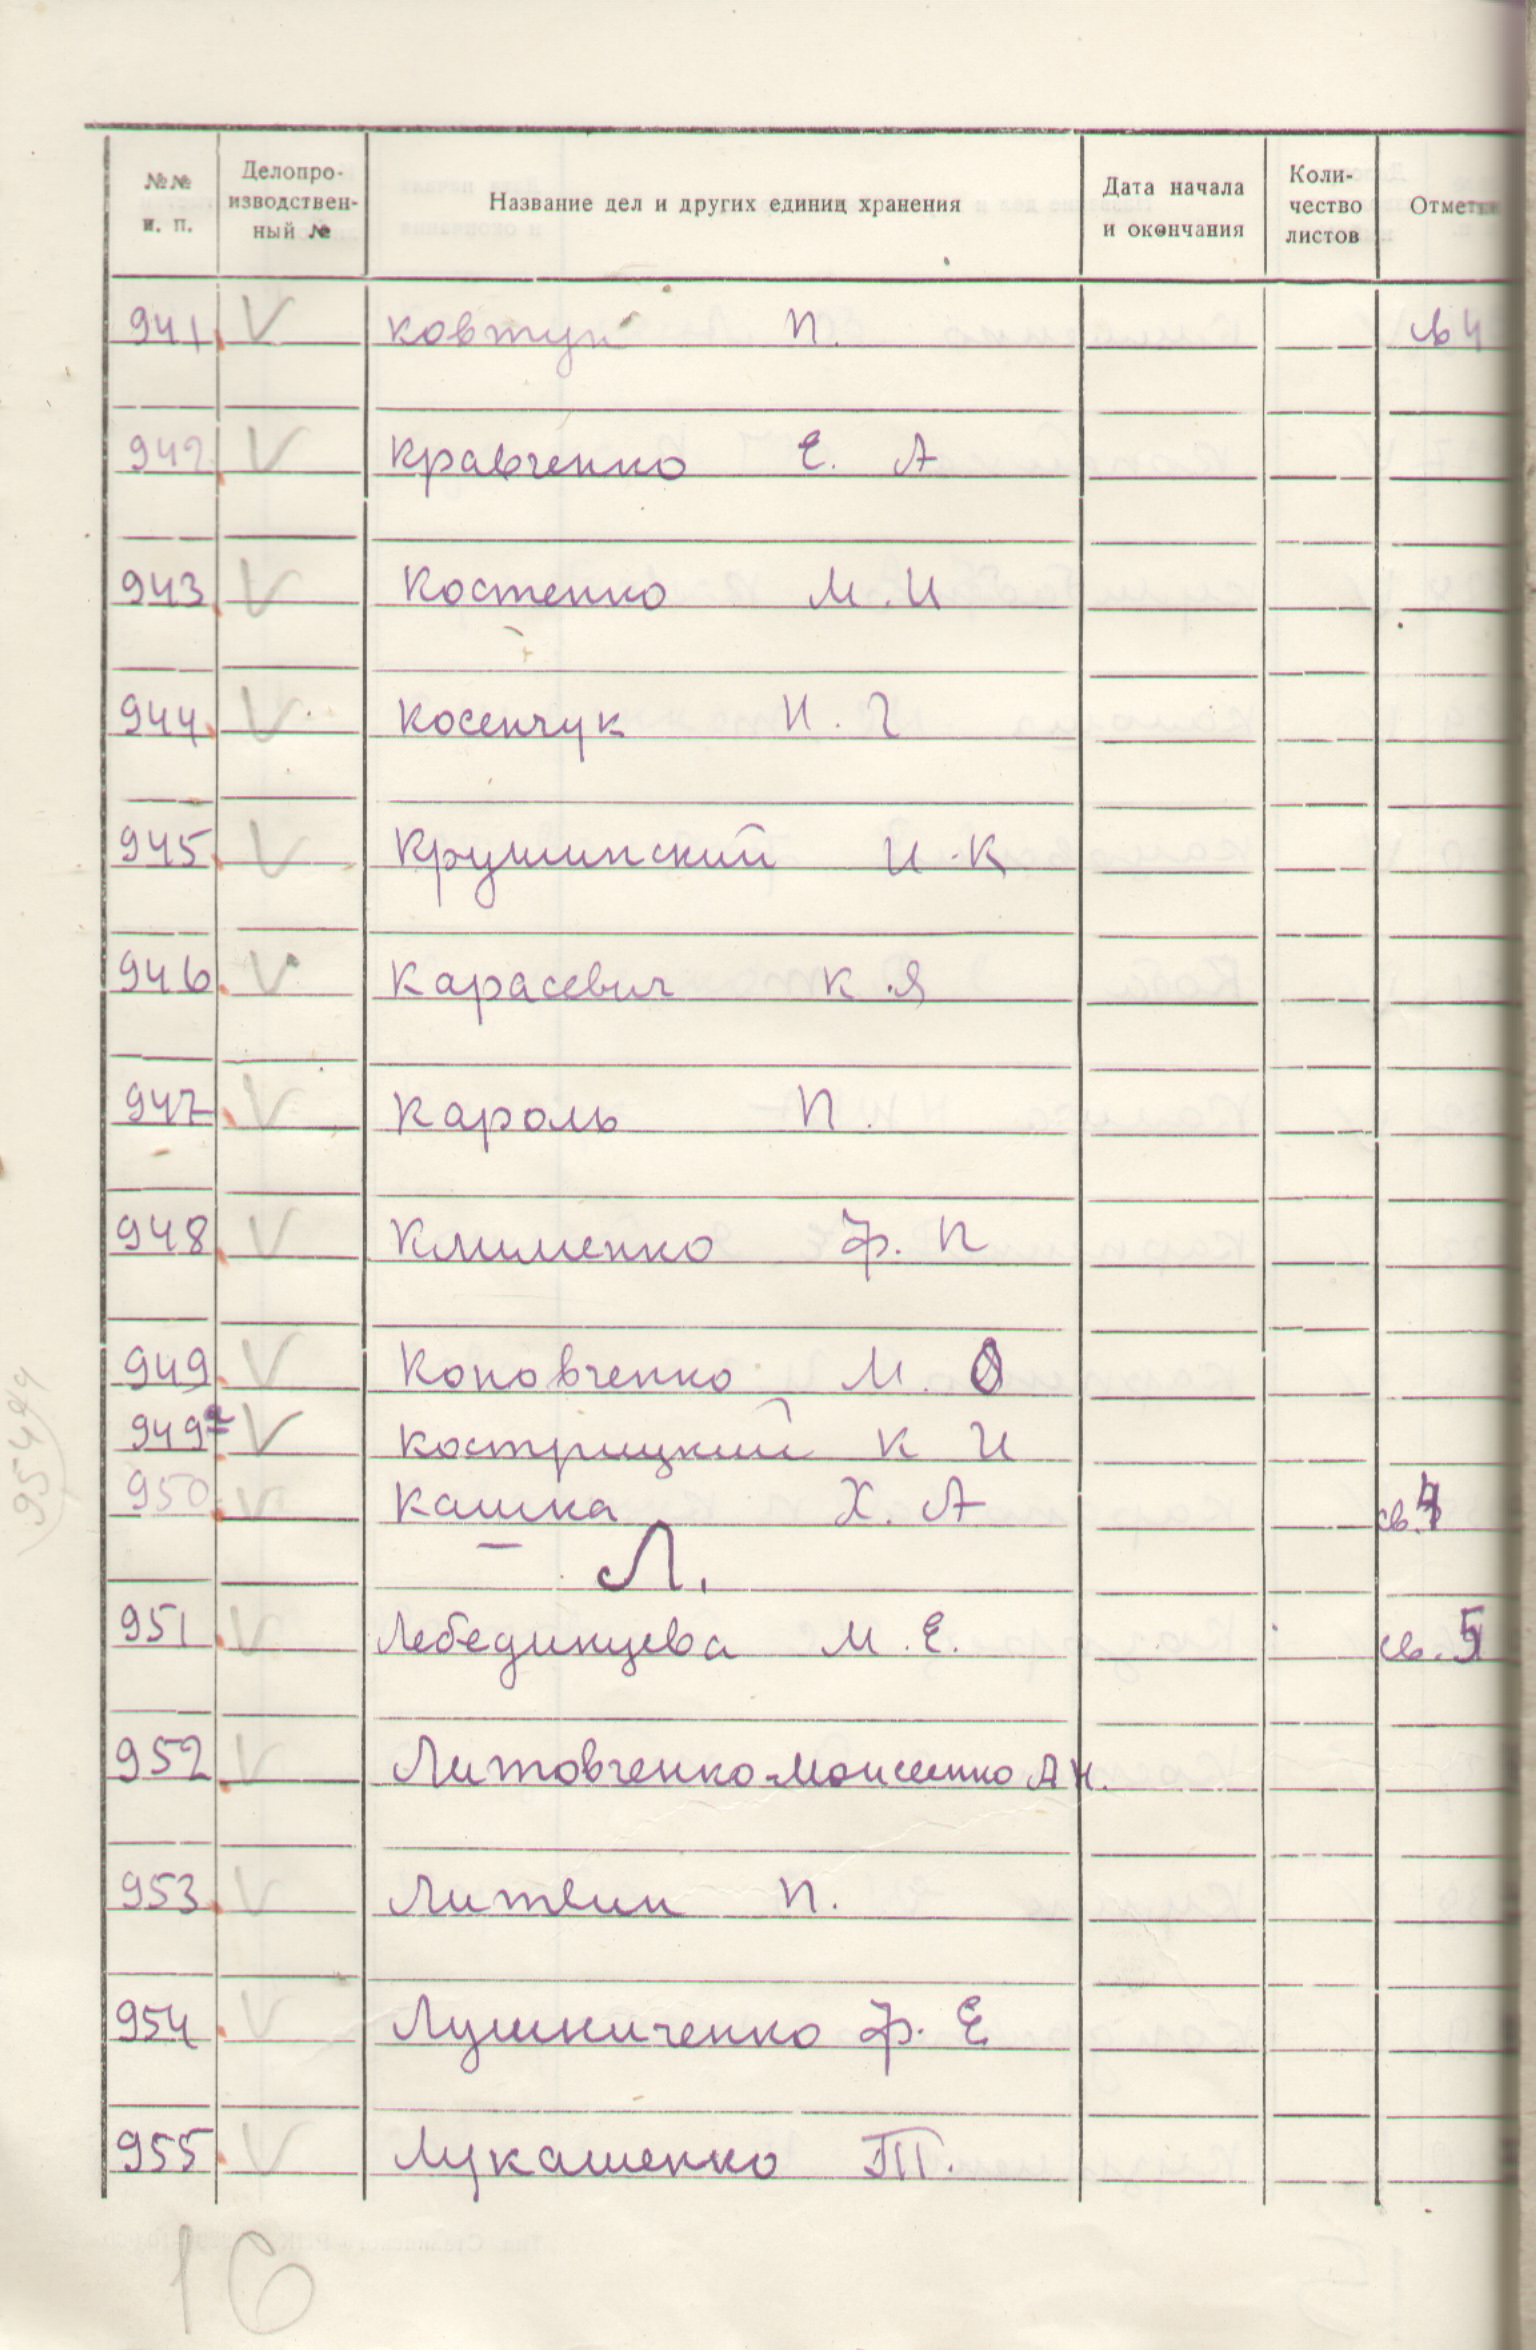 №№ п. п. Делопроизводственный № Название дел и других единиц хранения Дата начала и окончания Количество листов Отметки
941 V Ковтун П. св 4
942 V Кравченко Е. А
943 V Костенко М. И
944 V Косенчук И. Г
945 V Крушинский И. К
946 V Карасевич К. Я
947 V Кароль П.
948 V Клименко Ф. П
949 V Коновченко М. О
949а V Кострицкий К И
950 V Кашка Х. А св. 4
Л.
951 V Лебединцева М. Е. св. 5
952 V Литовченко-Моисеенко А Н.
953 V Литвин П.
954 V Лушниченко Ф. Е
955 V Лукашенко Т.
16